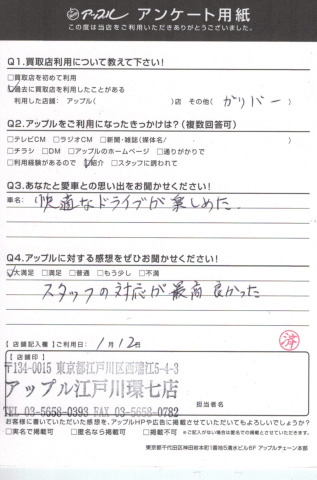 アップル アンケート用紙
この度は当店をご利用いただきありがとうございました。
Q1.買取店利用について教えて下さい!
□買取店を初めて利用
□過去に買取店を利用したことがある
利用した店舗: アップル( )店 その他( ガリバー )
Q2.アップルをご利用になったきっかけは?(複数回答可)
□テレビCM □ラジオCM □新聞・雑誌(媒体名/ )
□チラシ □DM □アップルのホームページ □通りがかりで
□利用経験があるので □紹介 □スタッフに誘われて
Q3.あなたと愛車との思い出をお聞かせください!
車名:
快適なドライブが楽しめた.
Q4.アップルに対する感想をぜひお聞かせください!
□大満足 □満足 □普通 □もう少し □不満
スタッフの対応が最高良かった
【店舗記入欄】ご利用日: 1月12日
【店舗印】
〒134-0015 東京都江戸川区西瑞江5-4-3
アップル江戸川環七店
TEL 03-5658-0393 FAX 03-5658-0782
担当者名
お客様に書いていただいた感想を、アップルHPや広告に掲載させていただいてもよろしいでしょうか?
□実名で掲載可 □匿名なら掲載可 □掲載不可 ※ご記入がない場合は匿名での掲載とさせていただきます。
東京都千代田区神田岩本町1番地5清水ビル6F アップルチェーン本部